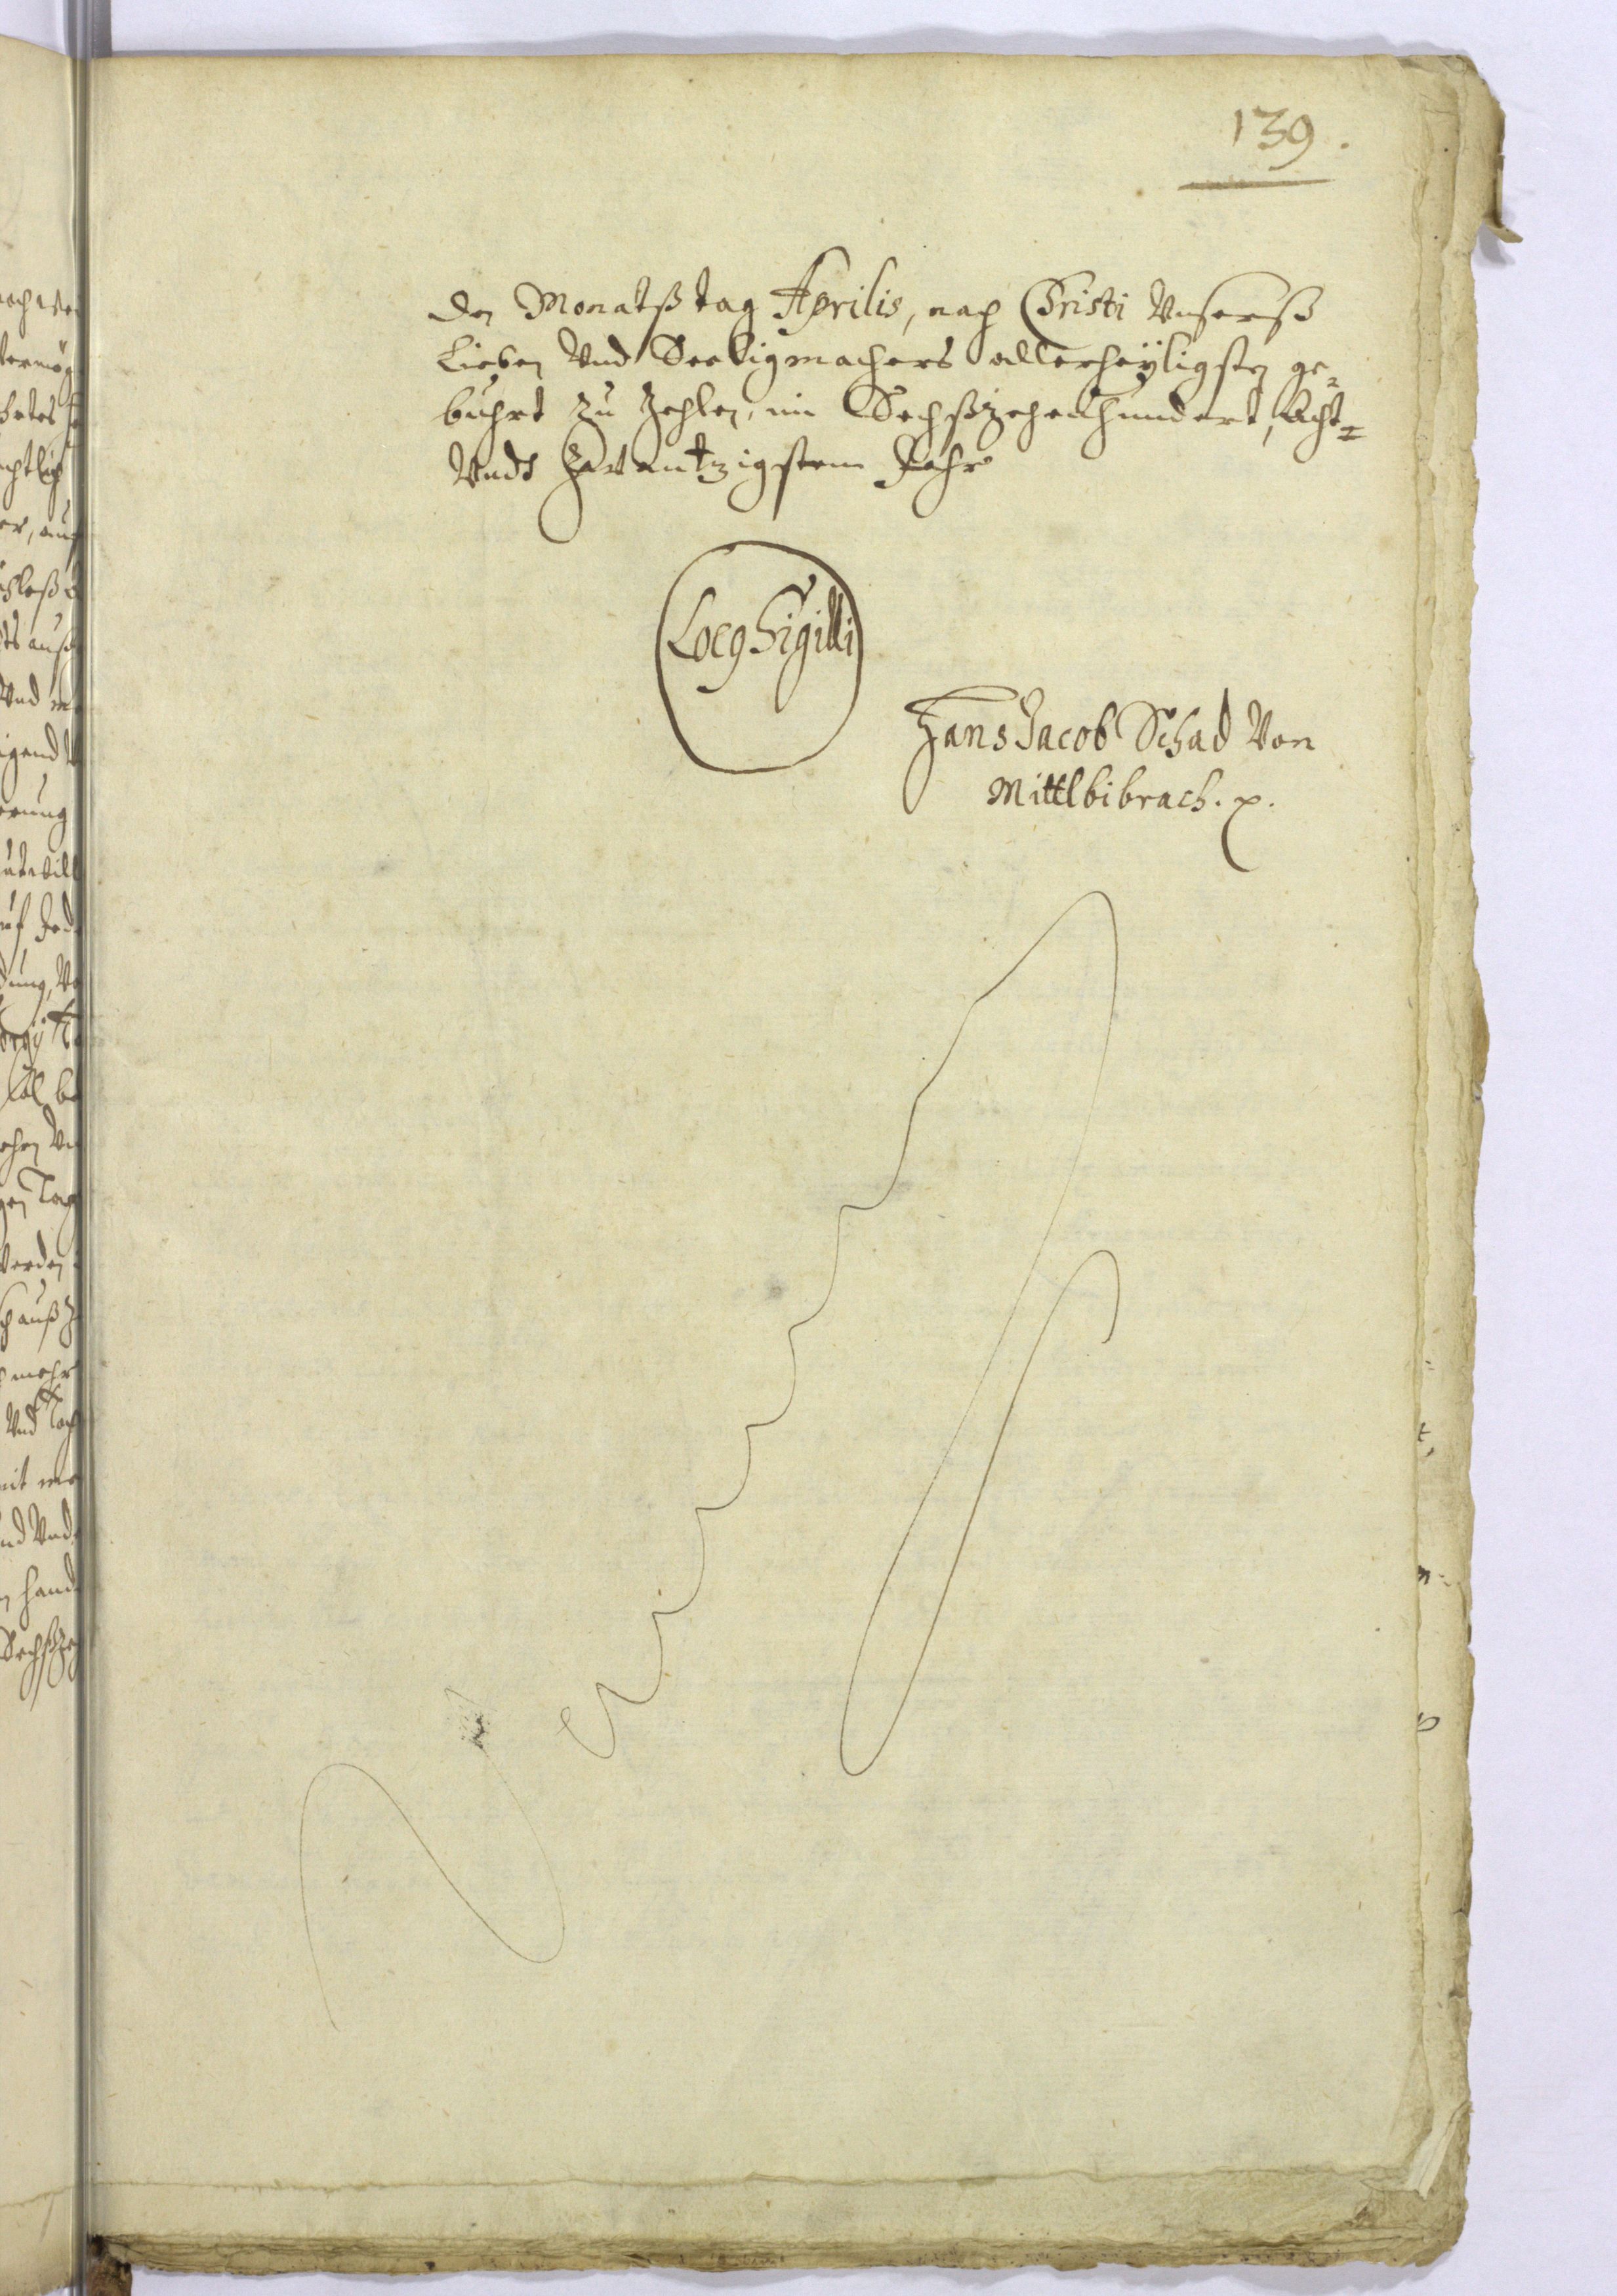 139.
den Monatßtag Aprilis, nach Christi Vnserß
Lieben Vnd Seeligmachers allerheyligsten ge-
buhrt zu Zehlen, im Sechßzehenhundert, Acht-
Vndt Zwantzigstem Jahr
Locg Sigilli
Hans Jacob Schad Von
Mittlbibrach.